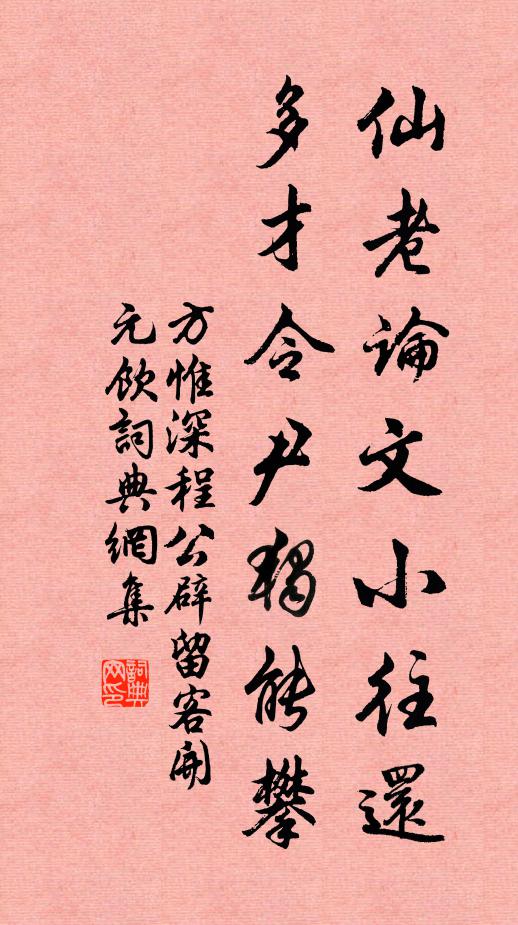 仙老論文小往還
多才令尹獨能攀
方惟深程公辟留客開
元飲詞典網集
詞典
网印